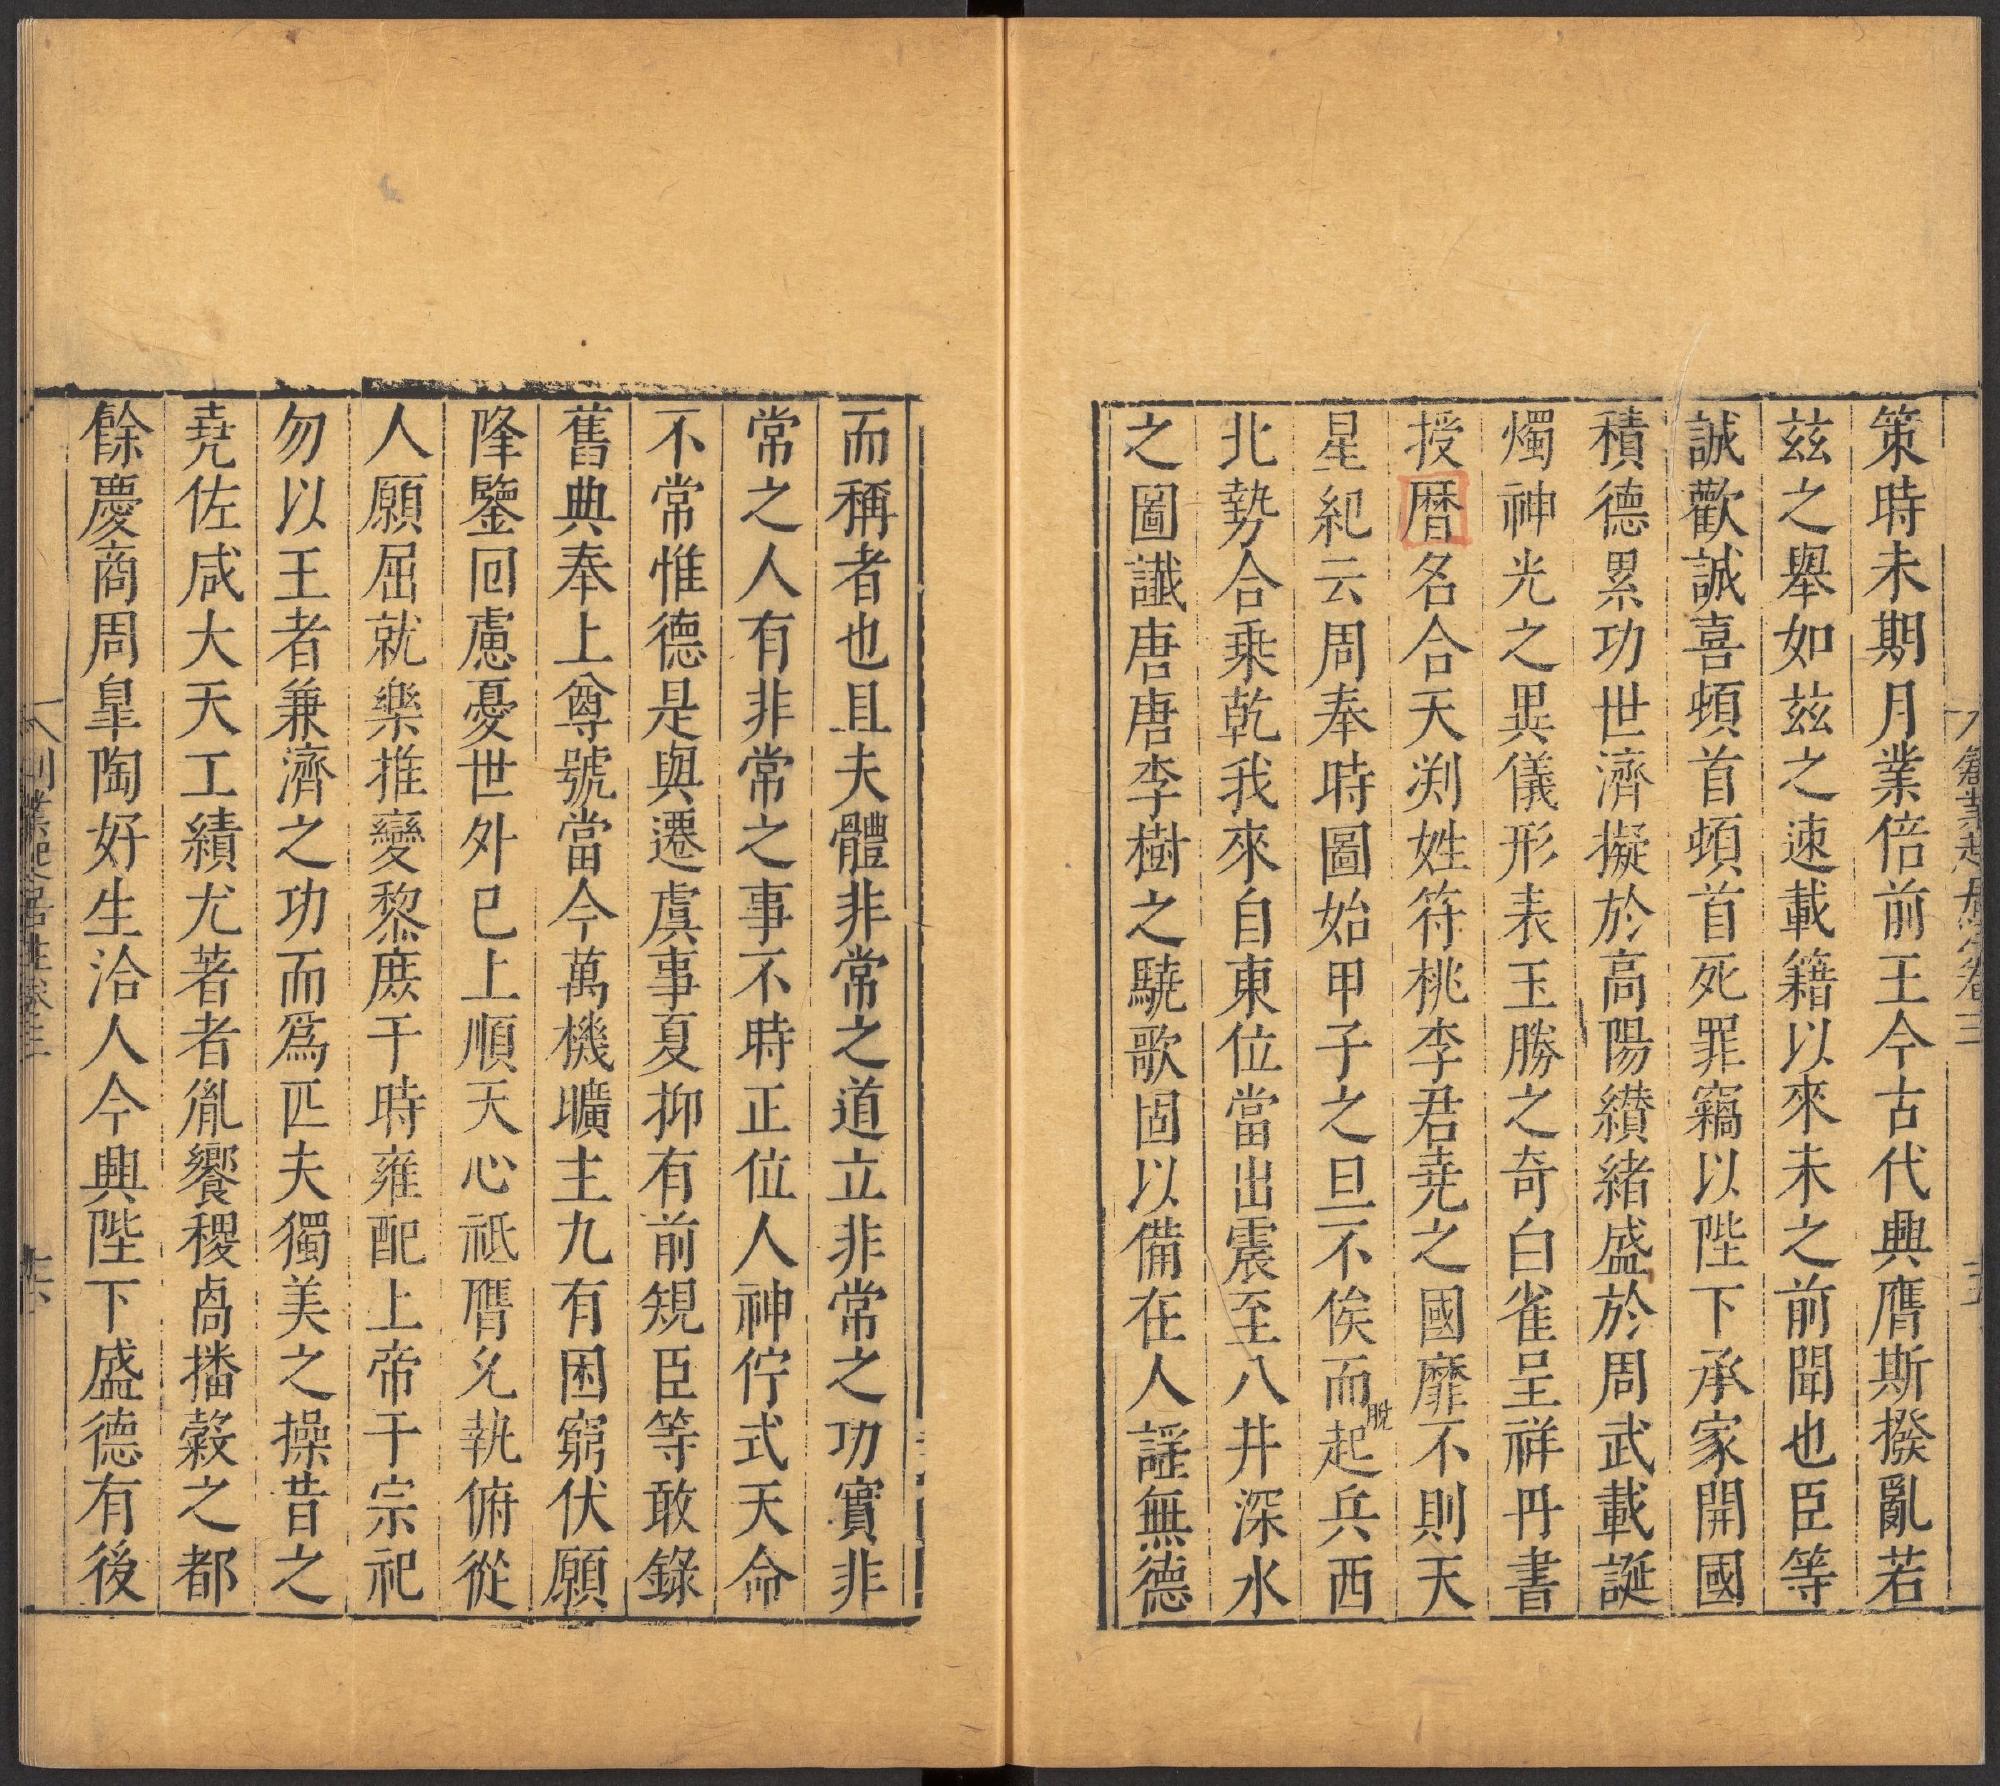 策時未期月業倍前王今古代興膺斯撥亂若
茲之舉如茲之速載籍以來未之前聞也臣等
誠歡誠喜頓首頓首死罪竊以陛下承家開國
積德累功世濟擬於高陽纉緒盛於周武載誕
燭神光之異儀形表玉勝之奇白雀呈祥丹書
授曆名合天渕姓符桃李君堯之國靡不則天
星紀云周奉時圖始甲子之旦不俟而起兵西
脫
北勢合乗乾我來自東位當出震至八井深水
之圖讖唐唐李樹之驍歌固以備在人謡無德
而稱者也且夫體非常之道立非常之功實非
常之人有非常之事不時正位人神佇式天命
不常惟德是與遷虞事夏抑有前規臣等敢錄
舊典奉上尊號當今萬機曠主九有困窮伏願
降鑒回慮憂世外已上順天心祗膺允執俯從
人願屈就樂推變黎庶于時雍配上帝于宗祀
勿以王者兼濟之功而爲匹夫獨美之操昔之
堯佐咸大天工績尤著者胤饗稷卨播穀之都
餘慶商周皐陶好生洽人今興陛下盛德有後